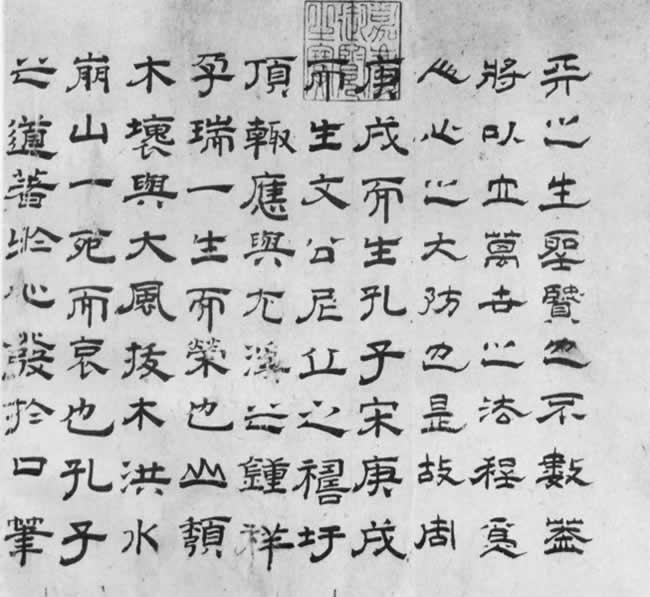 嘉慶御覽之寶
天之生聖賢也不數蓋
將以立萬世之法程為
人心之大防也是故周
庚戌而生孔子宋庚戌
而生文公尼丘之禱圩
頂輒應與尤溪之鍾祥
孕瑞一生而榮也山頹
木壞與大風拔木洪水
崩山一死而哀也孔子
之道著於心發於口筆